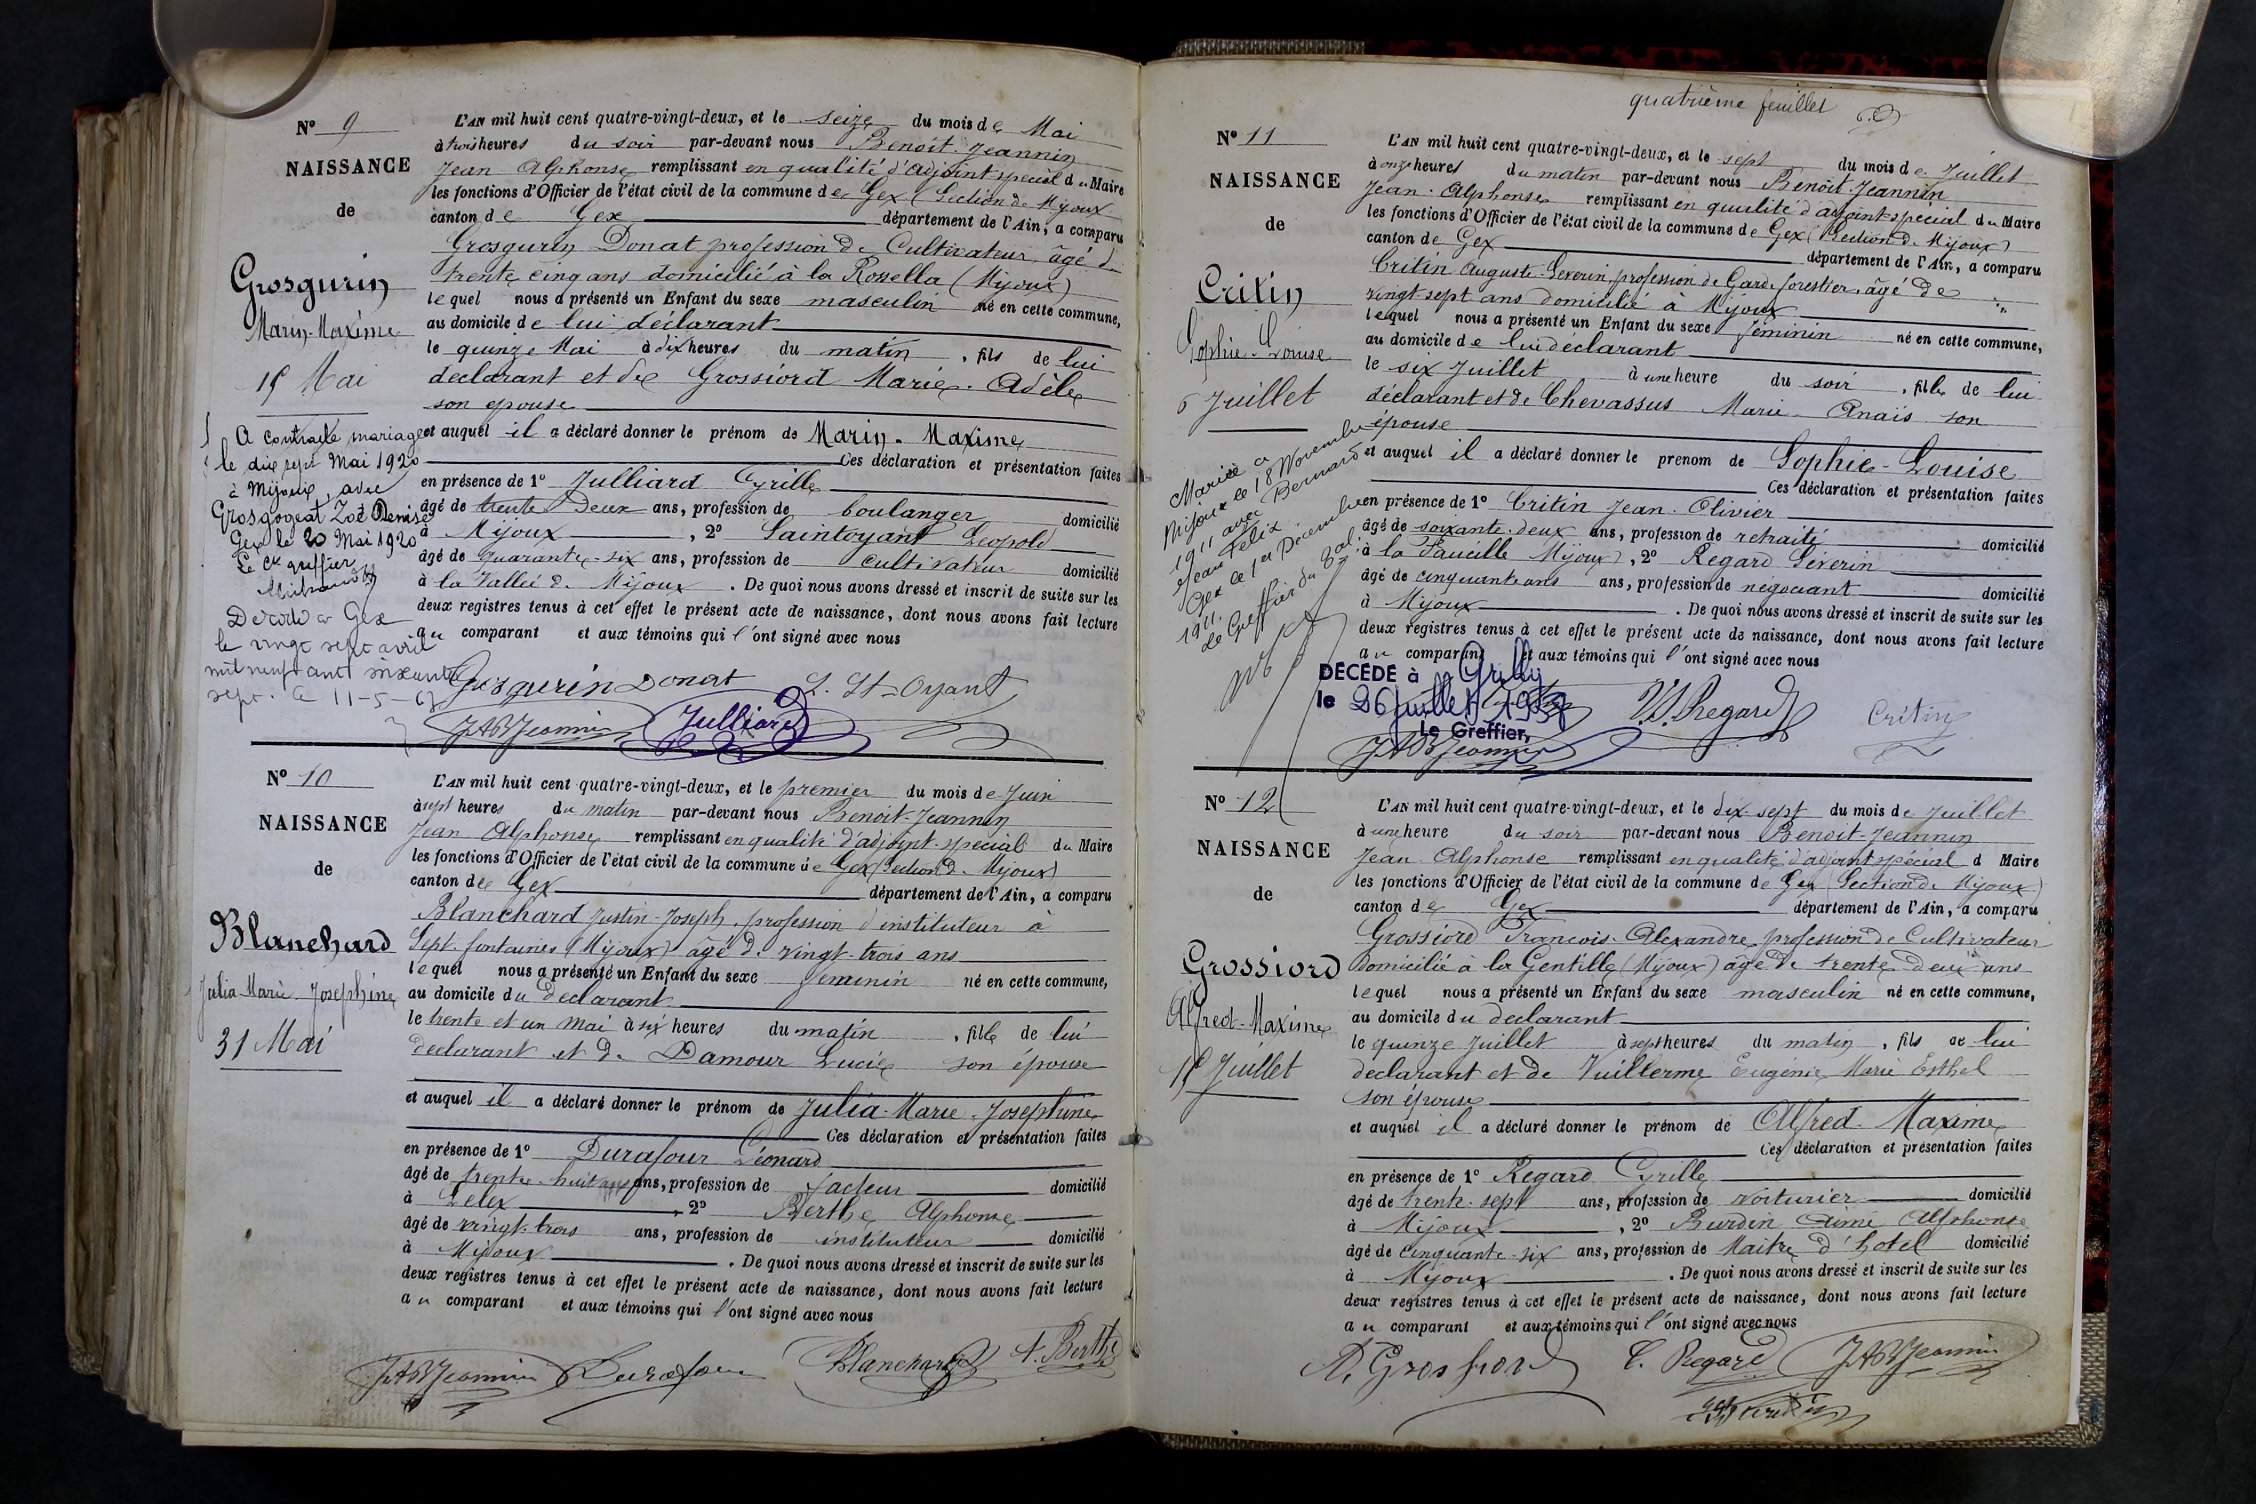 Nº 9
NAISSANCE
de
Grosgurin
Marin-Maxime
15 Mai
A contracté mariage
le dix sept Mai 1920
à Mijoux, avec
Grosgogeat Zoé Denise
Gex le 20 Mai 1920
Le Cis greffier
Décédé à Gex
le vingt sept avril
mil neuf cent soixante
sept. le 11-5-67
L'AN mil huit cent quatre-vingt-deux, et le seize du mois de Mai
à trois heures du soir par-devant nous Benoit-Jeannin
Jean Alphonse remplissant en qualité d'adjoint spécial du Maire
les fonctions d'Officier de l'état civil de la commune de Gex (Section de Mijoux
canton de Gex département de l'Ain, a comparu
Grosgurin Donat profession de Cultivateur, âgé de
trente cinq ans domicilié à la Rossella (Mijoux)
lequel nous a présenté un Enfant du sexe masculin né en cette commune,
au domicile de lui déclarant
le quinze Mai à dix heures du matin, fils de lui
déclarant et de Grossiord Marie-Adèle
son épouse
et auquel il a déclaré donner le prénom de Marin-Maxime
Ces déclaration et présentation faites
en présence de 1º Julliard Cyrille
âgé de trente deux ans, profession de boulanger domicilié
à Mijoux, 2º Saintoyant Léopold
âgé de quarante-six ans, profession de cultivateur domicilié
à la Vallée de Mijoux. De quoi nous avons dressé et inscrit de suite sur les
deux registres tenus à cet effet le présent acte de naissance, dont nous avons fait lecture
au comparant et aux témoins qui l'ont signé avec nous
Grosgurin Donat L. St-Oyant
JABJeannin Julliard
Nº 10
NAISSANCE
de
Blanchard
Julia-Marie Joséphine
31 Mai
L'AN mil huit cent quatre-vingt-deux, et le premier du mois de Juin
à sept heures du matin par-devant nous Benoit-Jeannin
Jean Alphonse remplissant en qualité d'adjoint-spécial du Maire
les fonctions d'Officier de l'état civil de la commune de Gex (Section de Mijoux)
canton de Gex département de l'Ain, a comparu
Blanchard Justin-Joseph, profession d'instituteur à
Sept-fontaines (Mijoux) âgé de vingt-trois ans
lequel nous a présenté un Enfant du sexe féminin né en cette commune,
au domicile du déclarant
le trente et un Mai à six heures du matin, fille de lui
déclarant et de Damour Lucie son épouse
et auquel il a déclaré donner le prénom de Julia-Marie-Joséphine
Ces déclaration et présentation faites
en présence de 1º Durafour Léonard
âgé de trente-huit ans, profession de facteur domicilié
à Lelex, 2º Berthe Alphonse
âgé de vingt-trois ans, profession de instituteur domicilié
à Mijoux. De quoi nous avons dressé et inscrit de suite sur les
deux registres tenus à cet effet le présent acte de naissance, dont nous avons fait lecture
au comparant et aux témoins qui l'ont signé avec nous
JABJeannin Durafour Blanchard A. Berthe
quatrième feuillet
Nº 11
NAISSANCE
de
Critin
Sophie-Louise
6 Juillet
Mariée à
Mijoux le 18 Novembre
1911 avec Bernard
Jean Félix
Gex le 1er Décembre
1911.
Le Greffier du Bal:
L'AN mil huit cent quatre-vingt-deux, et le sept du mois de Juillet
à onze heures du matin par-devant nous Benoit-Jeannin
Jean-Alphonse remplissant en qualité d'adjoint spécial du Maire
les fonctions d'Officier de l'état civil de la commune de Gex (Section de Mijoux)
canton de Gex département de l'Ain, a comparu
Critin Auguste-Séverin, profession de Garde forestier, âgé de
vingt-sept ans domicilié à Mijoux
lequel nous a présenté un Enfant du sexe féminin né en cette commune,
au domicile de lui déclarant
le six Juillet à une heure du soir, fille de lui
déclarant et de Chevassus Marie-Anaïs son
épouse
et auquel il a déclaré donner le prenom de Sophie-Louise
Ces déclaration et présentation faites
en présence de 1º Critin Jean-Olivier
âgé de soixante-deux ans, profession de retraité domicilié
à la Faucille Mijoux), 2º Regard Séverin
âgé de cinquante ans ans, profession de négociant domicilié
à Mijoux. De quoi nous avons dressé et inscrit de suite sur les
deux registres tenus à cet effet le présent acte de naissance, dont nous avons fait lecture
au comparant et aux témoins qui l'ont signé avec nous
DECEDE à Grilly
le 26 juillet 1957
Le Greffier,
V.S. Regard Critin
JABJeannin
Nº 12
NAISSANCE
de
Grossiord
Alfred-Maxime
15 Juillet
L'AN mil huit cent quatre-vingt-deux, et le dix-sept du mois de Juillet
à une heure du soir par-devant nous Benoit-Jeannin
Jean-Alphonse remplissant en qualité d'adjoint spécial d Maire
les fonctions d'Officier de l'état civil de la commune de Gex (Section de Mijoux)
canton de Gex département de l'Ain, a comparu
Grossiord François-Alexandre, profession de Cultivateur
domicilié à la Gentille (Mijoux) âgé de trente deux ans
lequel nous a présenté un Enfant du sexe masculin né en cette commune,
au domicile du déclarant
le quinze Juillet à sept heures du matin, fils de lui
déclarant et de Vuillerme Eugénie Marie Esthel
son épouse
et auquel il a déclaré donner le prénom de Alfred-Maxime
Ces déclaration et présentation faites
en présence de 1º Regard Cyrille
âgé de trente-sept ans, profession de voiturier domicilié
à Mijoux, 2º Burdin Aimé Alphonse
âgé de cinquante-six ans, profession de Maître d'hôtel domicilié
à Mijoux. De quoi nous avons dressé et inscrit de suite sur les
deux registres tenus à cet effet le présent acte de naissance, dont nous avons fait lecture
au comparant et aux témoins qui l'ont signé avec nous
A. Grossiord C. Regard JABJeannin
Burdin